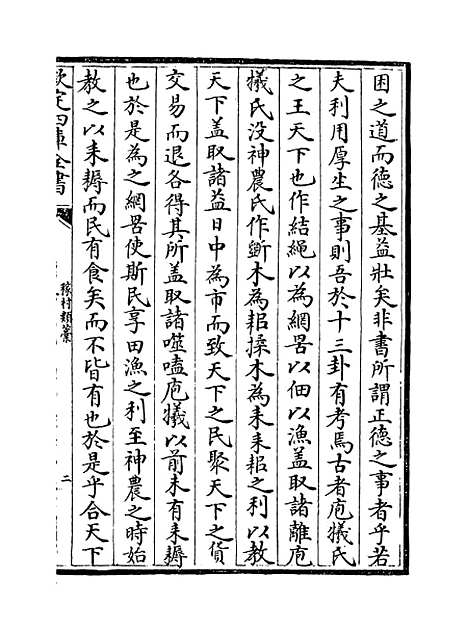 困之道而德之基益壯矣非書所謂正德之事者乎若
夫利用厚生之事則吾於十三卦有考焉古者庖犧氏
之王天下也作結繩以為網罟以佃以漁蓋取諸離庖
犧氏没神農氏作斵木為耜揉木為耒耒耜之利以教
天下盖取諸益日中為市而致天下之民聚天下之貨
交易而退各得其所盖取諸噬嗑庖犧以前未有耒耨
也於是為之網罟使斯民享田漁之利至神農之時始
教之以耒耨而民有食矣而不皆有也於是乎合天下
欽定四庫全書
稼村類藁
二